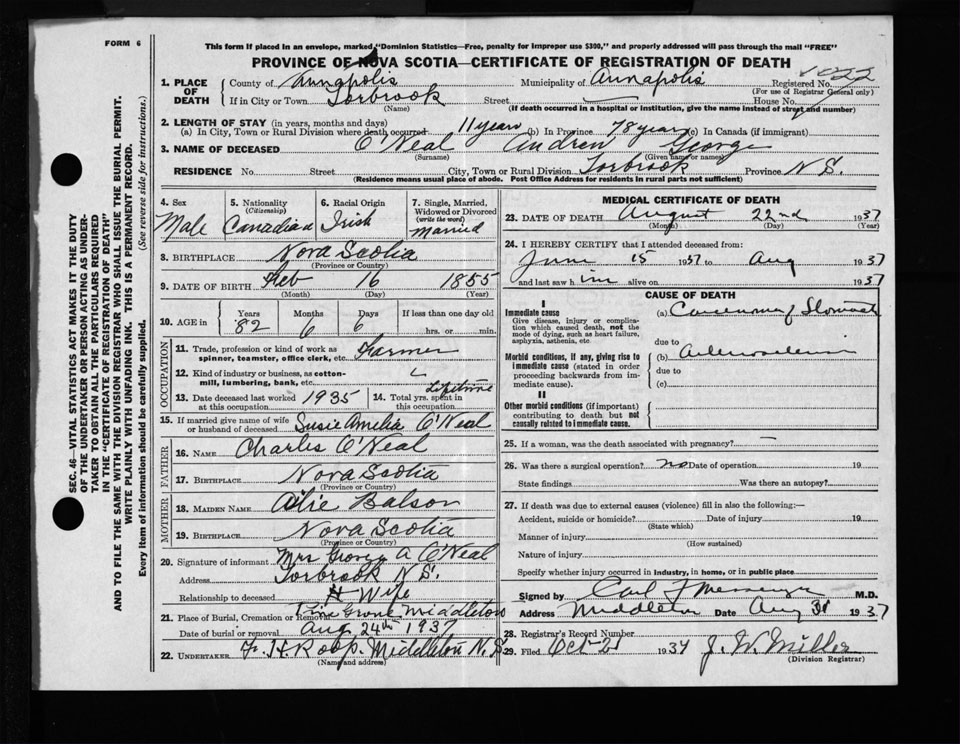 FORM 6
This form if placed in an envelope, marked "Dominion Statistics—Free, penalty for improper use $300," and properly addressed will pass through the mail "FREE"
PROVINCE OF NOVA SCOTIA—CERTIFICATE OF REGISTRATION OF DEATH
1. PLACE OF DEATH County of Annapolis Municipality of Annapolis Registered No. 22
(For use of Registrar General only)
If in City or Town Torbrook Street House No.
(Name) (If death occurred in a hospital or institution, give the name instead of street and number)
2. LENGTH OF STAY (in years, months and days)
(a) In City, Town or Rural Division where death occurred 11 years (b) In Province 78 years (c) In Canada (if immigrant)
3. NAME OF DECEASED O'Neal Andrew George
(Surname) (Given name or names)
RESIDENCE No. Street City, Town or Rural Division Torbrook Province N S.
(Residence means usual place of abode. Post Office Address for residents in rural parts not sufficient)
SEC. 46—VITAL STATISTICS ACT MAKES IT THE DUTY
OF THE UNDERTAKER OR PERSON ACTING AS UNDER-
TAKER TO OBTAIN ALL THE PARTICULARS REQUIRED
IN THE "CERTIFICATE OF REGISTRATION OF DEATH"
AND TO FILE THE SAME WITH THE DIVISION REGISTRAR WHO SHALL ISSUE THE BURIAL PERMIT.
WRITE PLAINLY WITH UNFADING INK. THIS IS A PERMANENT RECORD.
Every item of information should be carefully supplied. (See reverse side for instructions.)
4. Sex 5. Nationality (Citizenship) 6. Racial Origin 7. Single, Married, Widowed or Divorced (write the word)
Male Canadian Irish Married
8. BIRTHPLACE Nova Scotia
(Province or Country)
9. DATE OF BIRTH Feb 16 1855
(Month) (Day) (Year)
10. AGE in Years Months Days If less than one day old
82 6 6 hrs. or min.
OCCUPATION
11. Trade, profession or kind of work as spinner, teamster, office clerk, etc. Farmer
12. Kind of industry or business, as cotton-mill, lumbering, bank, etc.
13. Date deceased last worked at this occupation 1935 14. Total yrs. spent in this occupation Lifetime
15. If married give name of wife or husband of deceased Susie Amelia O'Neal
FATHER
16. NAME Charles O'Neal
17. BIRTHPLACE Nova Scotia
(Province or Country)
MOTHER
18. MAIDEN NAME Balsor
19. BIRTHPLACE Nova Scotia
(Province or Country)
20. Signature of informant Mrs A O'Neal
Address Torbrook N S.
Relationship to deceased Wife
21. Place of Burial, Cremation or Removal Pine Grove Middleton
Date of burial or removal Aug 24th 1937
22. UNDERTAKER Middleton N.S
(Name and address)
MEDICAL CERTIFICATE OF DEATH
23. DATE OF DEATH August 22nd 1937
(Month) (Day) (Year)
24. I HEREBY CERTIFY that I attended deceased from:
June 15 1937 to Aug 1937
and last saw him alive on 1937
CAUSE OF DEATH
I
Immediate cause (a) Carcinoma of Stomach
Give disease, injury or complication which caused death, not the mode of dying, such as heart failure, asphyxia, asthenia, etc.
due to
Morbid conditions, if any, giving rise to immediate cause (stated in order proceeding backwards from immediate cause). (b) Arteriosclerosis
due to
(c)
II
Other morbid conditions (if important) contributing to death but not causally related to immediate cause.
25. If a woman, was the death associated with pregnancy? —
26. Was there a surgical operation? no Date of operation 19
State findings Was there an autopsy?
27. If death was due to external causes (violence) fill in also the following:—
Accident, suicide or homicide? Date of injury 19
(State which)
Manner of injury
(How sustained)
Nature of injury
Specify whether injury occurred in industry, in home, or in public place
Signed by Carl Messenger M.D.
Address Middleton Date Aug 31 1937
28. Registrar's Record Number
29. Filed Oct 21 1937 J. W. Miller
(Division Registrar)